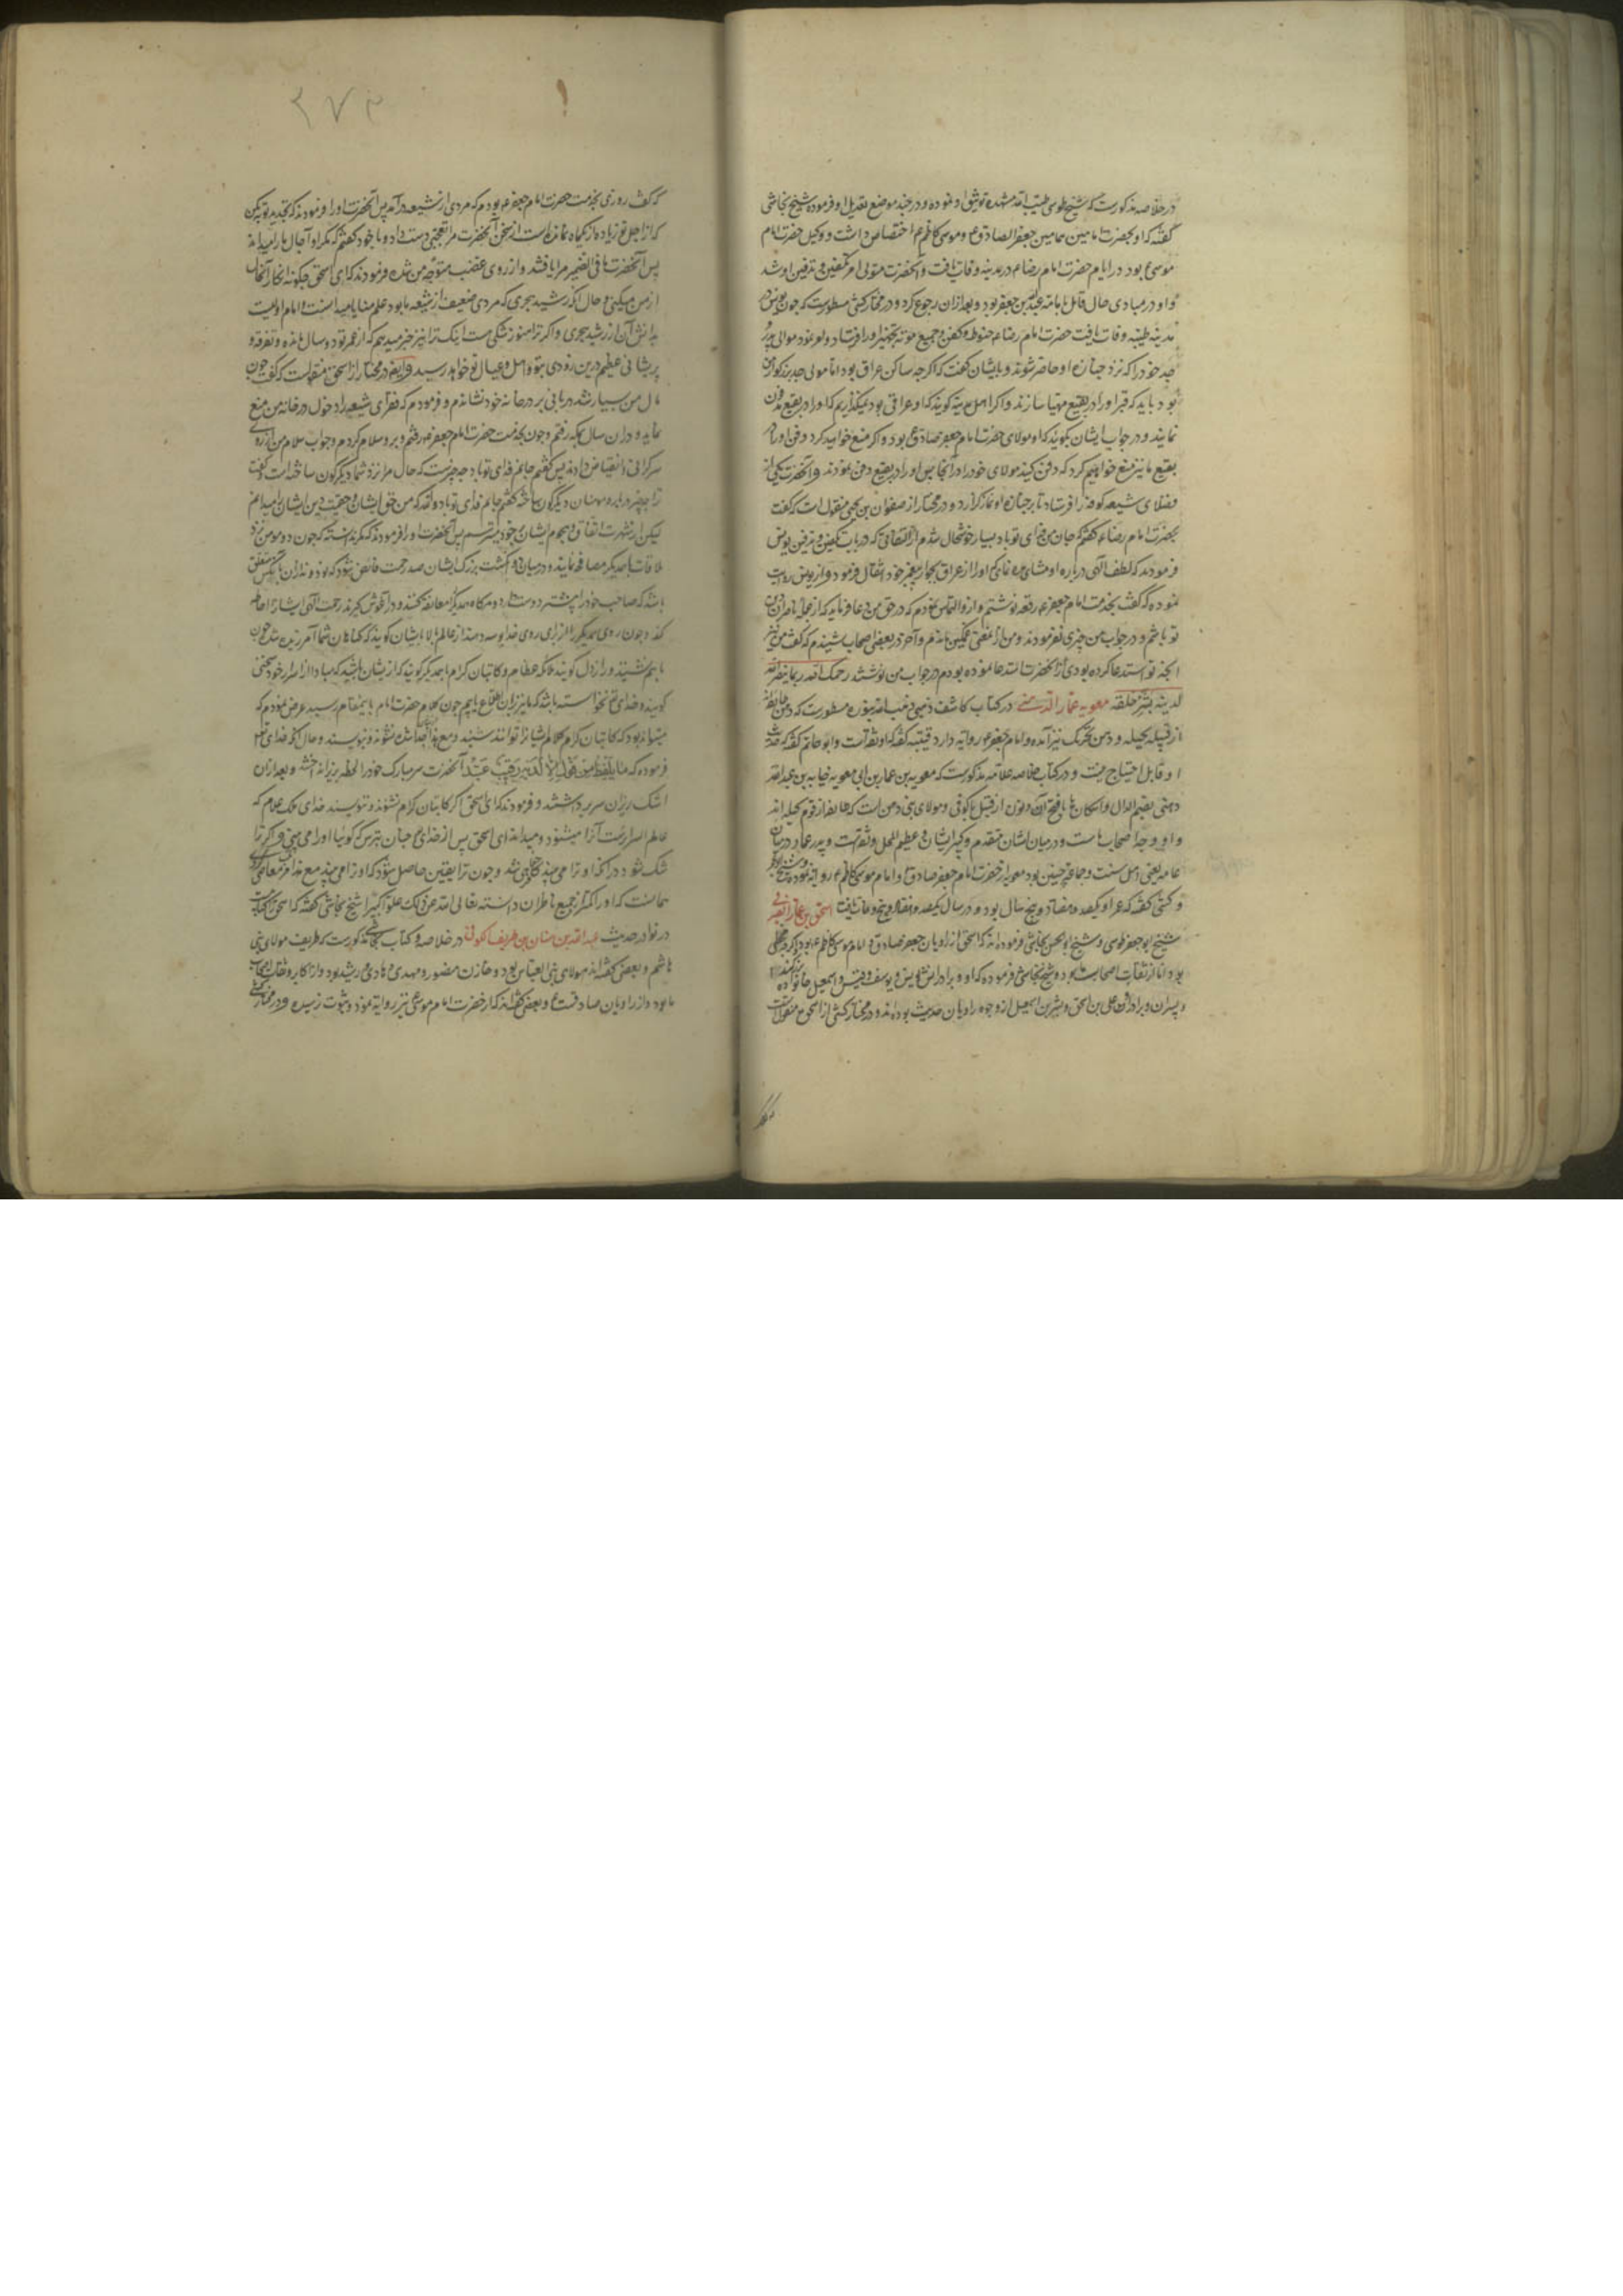 در خلاصه مذکورست که شیخ طوسی طیب الله مشهده توثیق او نموده و در چند موضع تعدیل او فرموده شیخ نجاشی
گفته که او بحضرت امامین همامین جعفر الصادق ع و موسی کاظم ع اختصاص داشت و وکیل حضرت امام
موسی ع بود در ایام حضرت امام رضا ع در مدینه وفات یافت و آنحضرت متولی امر تکفین و تدفین او شد
و او در مبادی حال قائل بامامة عبدالله بن جعفر بود و بعد از ان رجوع کرد و در مختار کشی مسطورست که چون یونس در
مدینه طیبه وفات یافت حضرت امام رضا ع حنوط و کفن و جمیع مؤنة تجهیز او را فرستاد و امر نمود موالی پدر
و جد خود را که نزد جنازه او حاضر شوند و بایشان گفت که اگرچه ساکن عراق بود اما مولی جد بزرگوار من
بود باید که قبر او را در بقیع مهیا سازند و اگر اهل مدینه گویند که او عراقی بود نمیگذاریم که او را در بقیع مدفون
نمایند و در جواب ایشان بگویند که او مولای حضرت امام جعفر صادق ع بود و اگر منع خواهید کرد دفن او را در
بقیع ما نیز منع خواهیم کرد که دفن کنید مولای خود را در آنجا پس او را در بقیع دفن نمودند و آنحضرت یکی از
فضلای شیعه کوفه را فرستاد تا بر جنازه او نماز گزارد و در مختار از صفوان بن یحیی منقول است که گفت
بحضرت امام رضا ع گفتم که جان من فدای تو باد بسیار خوشحال شدم از التفاتی که در باب تکفین و تدفین یونس
فرمودند که لطف الهی درباره او مشاهده نمائیم که او را از عراق بجوار پیغمبر خود انتقال فرمود و از یونس روایت
نموده که گفت بخدمت امام جعفر ع رقعه نوشتم و از و التماس نمودم که در حق من دعا فرماید که از جمله ناصران دین
تو باشم و در جواب من چیزی نفرمودند و من ازین معنی غمگین ماندم و آخر از بعضی اصحاب شنیدم که گفت من نیز
آنچه تو استدعا کرده بودی از آنحضرت استدعا نموده بودم در جواب من نوشتند رحمک الله ربما ینصر الله
لدینه بشر خلقه معویه بن عمار الدهنی در کتاب کاشف ذهبی ذهب الله بنوره مسطورست که دهن طایفه
از قبیله بجیله و دهن بتحریک نیز آمده و از امام جعفر ع روایه دارد قتیبه گفته که او ثقه است و ابوحاتم گفته که حدیث
او قابل احتیاج نیست و در کتاب خلاصه علامه مذکورست که معویه بن عمار بن ابی معویه خبابه بن عبدالله
دهنی بضم الدال و اسکان ها یا فتح آن و نون از قبیل کوفی و مولای بنی دهن است که طایفه از قوم بجیله اند
و او وجه اصحاب ماست و در میان ایشان متقدم و کبیر الشان و عظیم المحل و ثقه است و پدر عمار در میان
عامه یعنی اهل سنت و جماعة چنین بود معویه از حضرت امام جعفر صادق ع و امام موسی کاظم ع روایه نموده و شیخ ابو عمرو
و کشی گفته که عمر او یکصد و هفتاد و پنج سال بود و در سال یکصد و هفتاد و پنج وفات یافت اسحق بن عمار الصیرفی
شیخ ابو جعفر طوسی و شیخ ابو الحسن نجاشی فرموده اند که اسحق از راویان جعفر صادق و امام موسی کاظم ع بود
بود اما از ثقات اصحاب ما بود و شیخ نجاشی فرموده که او و برادرانش یونس و یوسف و قیس و اسمعیل خانواده بزرگند
و پسران برادران علی بن اسحق و بشر بن اسمعیل از وجوه راویان حدیث بوده اند و در مختار کشی از اسحق منقولست
که گفت روزی بخدمت حضرت امام جعفر ع بودم که مردی از شیعه درآمد پس آنحضرت او را فرمودند که تجدید توبه کن
که از اجل تو زیاده از یکماه نمانده است از سخن آنحضرت مرا تعجبی دست داد و با خود گفتم که مگر او آجال ما را میداند
پس آنحضرت ما فی الضمیر مرا یافتند و از روی غضب متوجه من شده فرمودند که ای اسحق چگونه انکار آنحال
از من میکنی و حال آنکه رشید هجری که مردی ضعیف از شیعه ما بود علم منایا میدانست و امام اولیست
بدانش آن از رشید هجری و اگر ترا هنوز شکی هست اینک ترا نیز خبر میدهم که از عمر تو دو سال مانده و تفرقه و
پریشانی عظیم درین زودی بتو و اهل و عیال تو خواهد رسید و ایضا در مختار از اسحق منقولست که گفت چون
مال من بسیار شد دربانی بر در خانه خود نشاندم و فرمودم که فقرای شیعه را دخول در خانه من منع
نماید و در ان سال بمکه رفتم و چون بخدمت حضرت امام جعفر ع رفتم و برو سلام کردم و جواب سلام من از روی
سرگرانی و انقباض دادند پس گفتم جانم فدای تو باد چه چیزست که حال مرا نزد شما دیگرگون ساخته است و گفت
آنچه ترا درباره مؤمنان دیگرگون ساخته گفتم جانم فدای تو باد والله که من حق ایشان و حقیت دین ایشان را میدانم
لیکن از شهرت اتفاق و هجوم ایشان بر خود میترسم پس آنحضرت او را فرمودند که مگر ندانسته که چون دو مؤمن نزد
ملاقات با همدیگر مصافحه نمایند و در میان دو انگشت بزرگ ایشان صد رحمت فائض شود که نود و نه از ان بآنکس متعلق
باشد که صاحب خود را بیشتر دوست دارد و هرگاه همدیگر معانقه کنند و در آغوش گیرند رحمت الهی ایشان را احاطه
کند و چون روی همدیگر را از برای روی خدا بوسه دهند از عالم بالا بایشان گویند که گناهان شما آمرزیده شد و چون
با هم نشینند و راز دل گویند ملائکه عظام و کاتبان کرام با همدیگر گویند که از ایشان باشید که مبادا از اسرار خود سخنی
گویند و خدای تعالی نخواسته باشد که ما نیز بران اطلاع یابیم چون کلام حضرت امام باینمقام رسید عرض نمودم که
میتواند بود که کاتبان کرام کلام ایشانرا نتوانند شنید و مع هذا آنچه نشنوند ننویسند و حال آنکه خدای تعالی
فرموده که ما یلفظ من قول الا لدیه رقیب عتید آنحضرت سر مبارک خود را لحظه بزیر انداختند و بعد از ان
اشک ریزان سر برداشتند و فرمودند که ای اسحق اگر کاتبان کرام نشنوند و ننویسند خدای ملک علام که
عالم السرایرست آنرا میشنود و میداند ای اسحق پس از خدای چنان بترس که گویا او را می بینی و اگر ترا
شک شود در انکه او ترا می بیند کافر می شد و چون ترا یقین حاصل شود که او ترا می بیند مع هذا مرتکب معاصی
همانست که او را کمتر از جمیع ناظران دانسته تعالی الله عن ذلک علوا کبیرا شیخ نجاشی گفته که اسحق را کتابیست
در نوادر حدیث عبدالله بن سنان بن طریف الکوفی در خلاصه و کتاب نجاشی مذکورست که طریف مولای بنی
هاشم و بعضی گفته اند مولای بنی العباس بود و خازن منصور و مهدی و هادی و رشید بود و از اکابر و ثقات اصحاب
ما بود و از راویان صادقست و بعضی گفته اند که از حضرت امام موسی ع نیز روایه نموده و بثبوت نرسیده و در مختار کشی